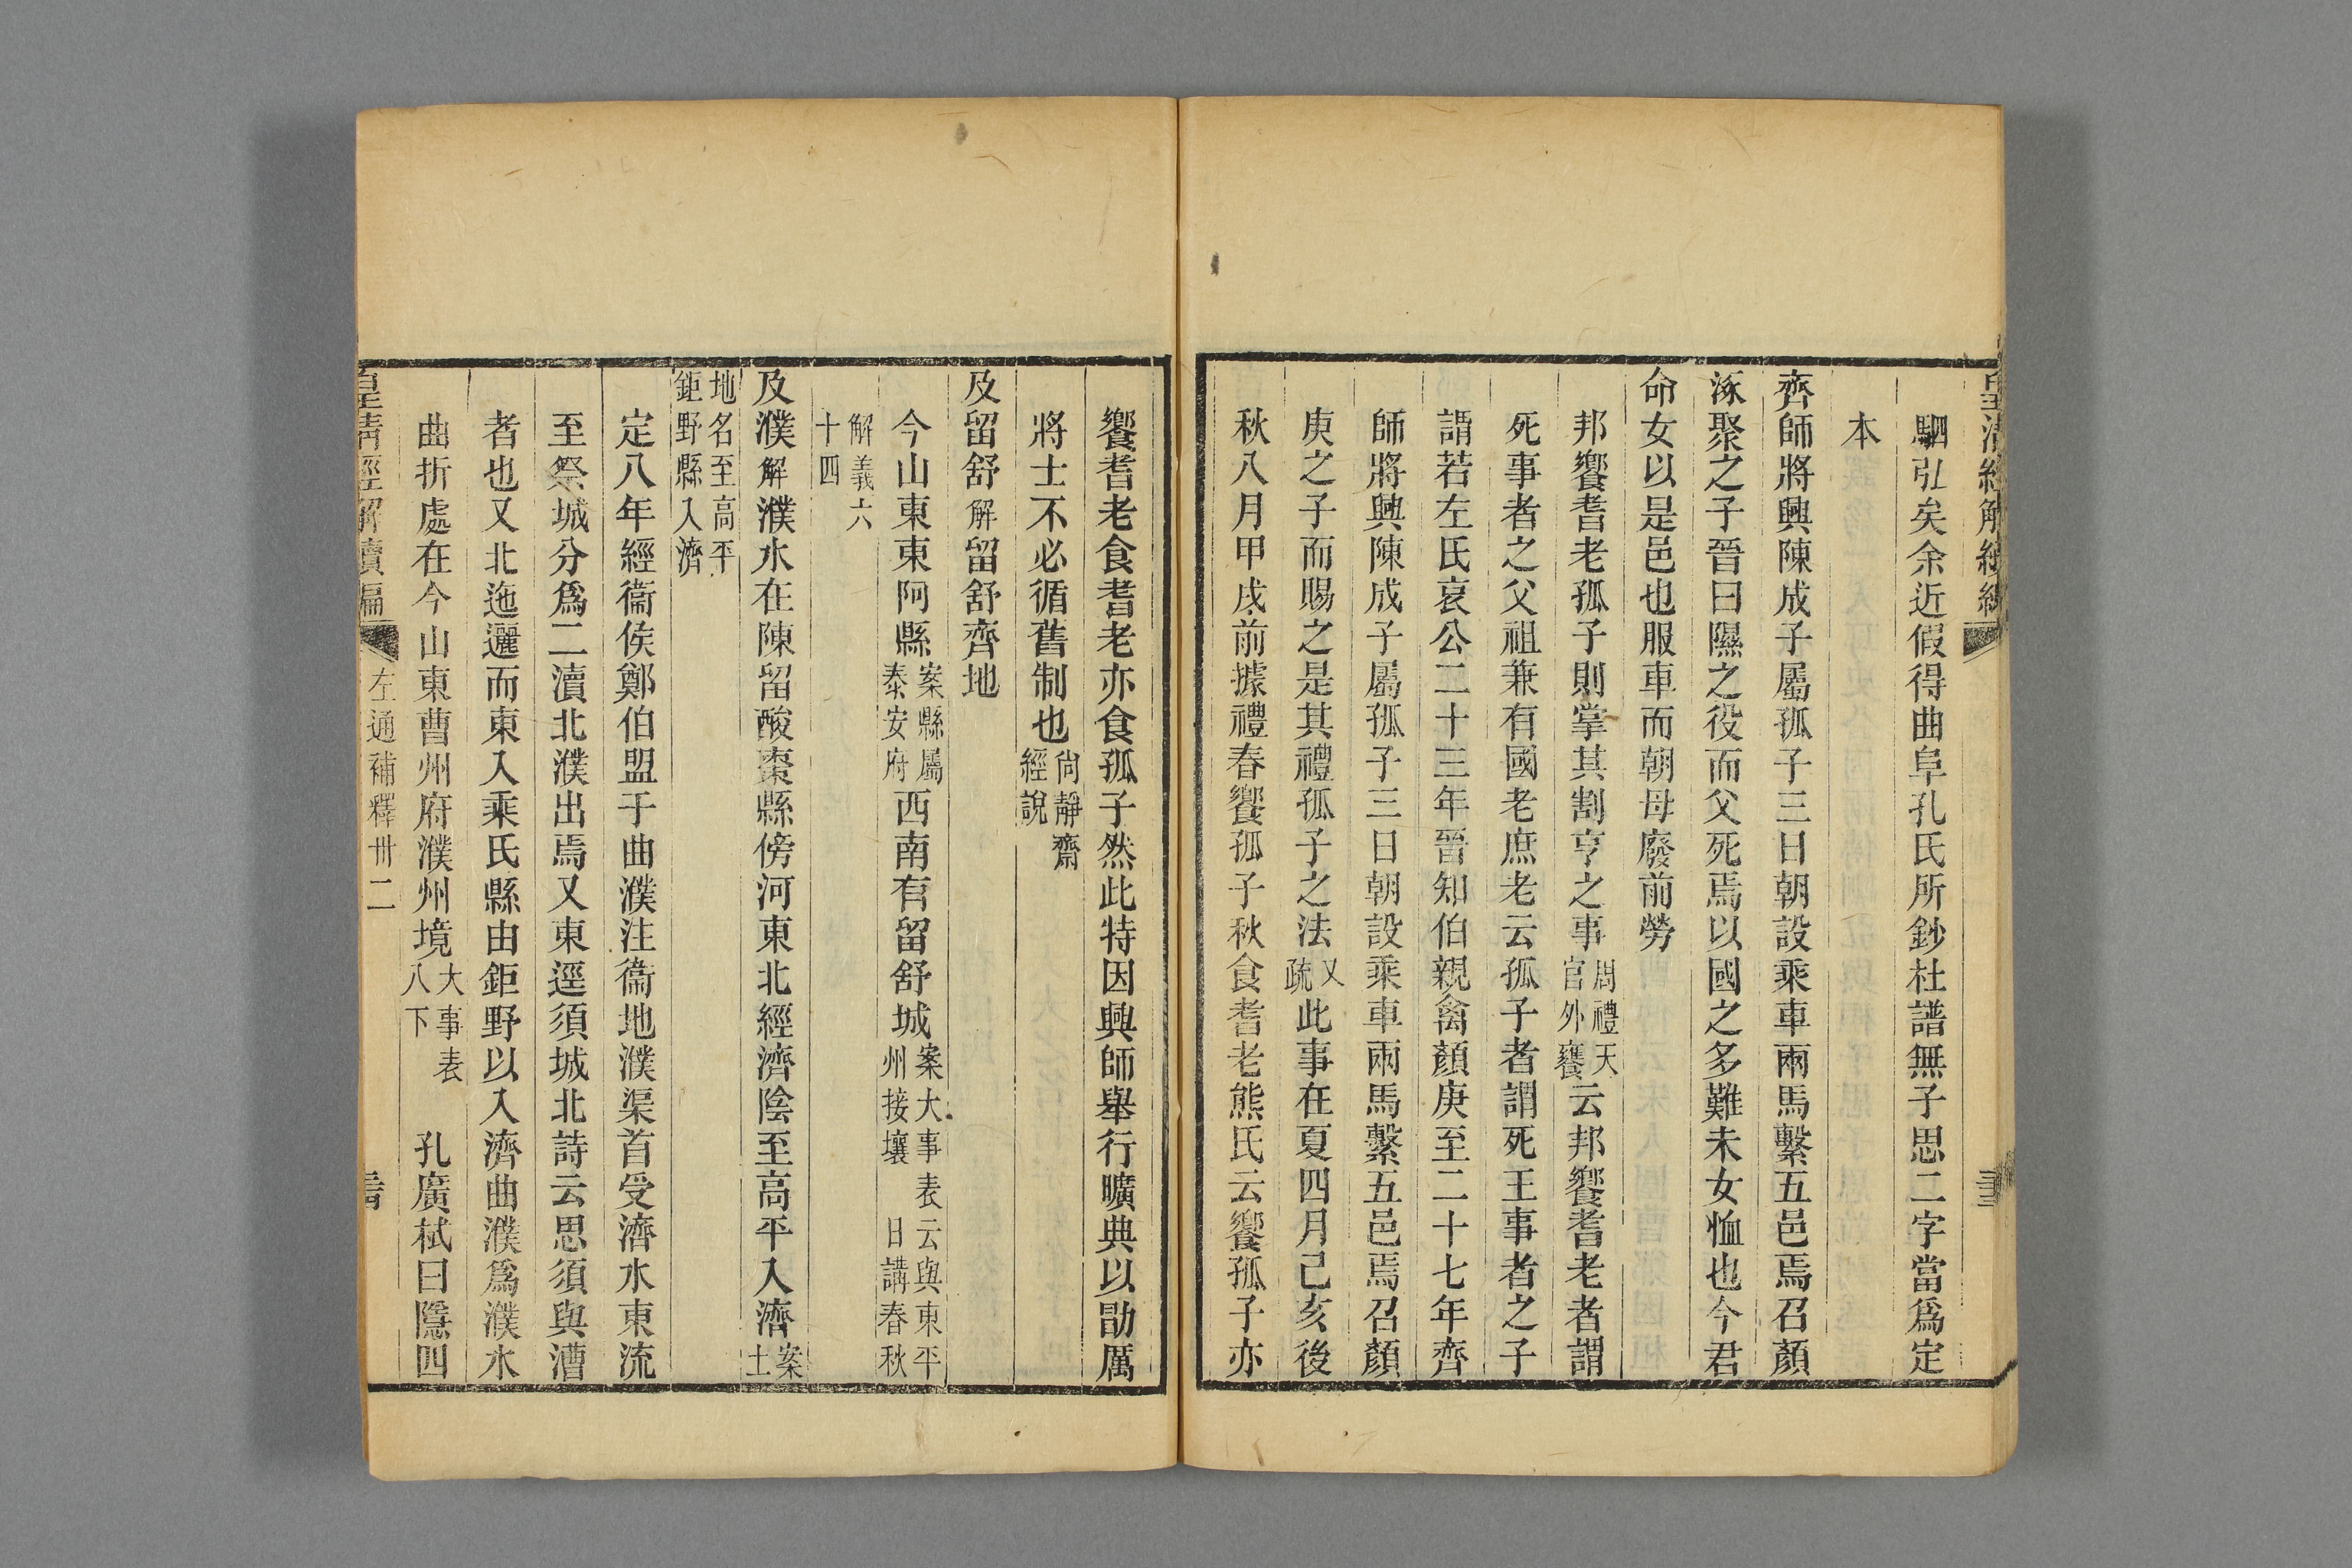 皇清經解續編
駟弘矣余近假得曲阜孔氏所鈔杜譜無子思二字當爲定
本
齊師將興陳成子屬孤子三日朝設乘車兩馬繫五邑焉召顏
涿聚之子晉曰隰之役而父死焉以國之多難未女恤也今君
命女以是邑也服車而朝毋廢前勞
邦饗耆老孤子則掌其割亨之事周禮天官外饔云邦饗耆老者謂
死事者之父祖兼有國老庶老云孤子者謂死王事者之子
謂若左氏哀公二十三年晉知伯親禽顏庚至二十七年齊
師將興陳成子屬孤子三日朝設乘車兩馬繫五邑焉召顏
庚之子而賜之是其禮孤子之法又疏此事在夏四月己亥後
秋八月甲戌前據禮春饗孤子秋食耆老熊氏云饗孤子亦
饗耆老食耆老亦食孤子然此特因興師舉行曠典以勖厲
將士不必循舊制也尙靜齋經說
及留舒解留舒齊地
今山東東阿縣案縣屬泰安府西南有留舒城案大事表云與東平州接壤 日講春秋
解義六十四
及濮解濮水在陳留酸棗縣傍河東北經濟陰至高平入濟案土
地名至高平鉅野縣入濟
定八年經衞侯鄭伯盟于曲濮注衞地濮渠首受濟水東流
至祭城分爲二瀆北濮出焉又東逕須城北詩云思須與漕
者也又北迤邐而東入乘氏縣由鉅野以入濟曲濮爲濮水
曲折處在今山東曹州府濮州境大事表八下 孔廣栻曰隱四
皇清經解續編 左通補釋卅二